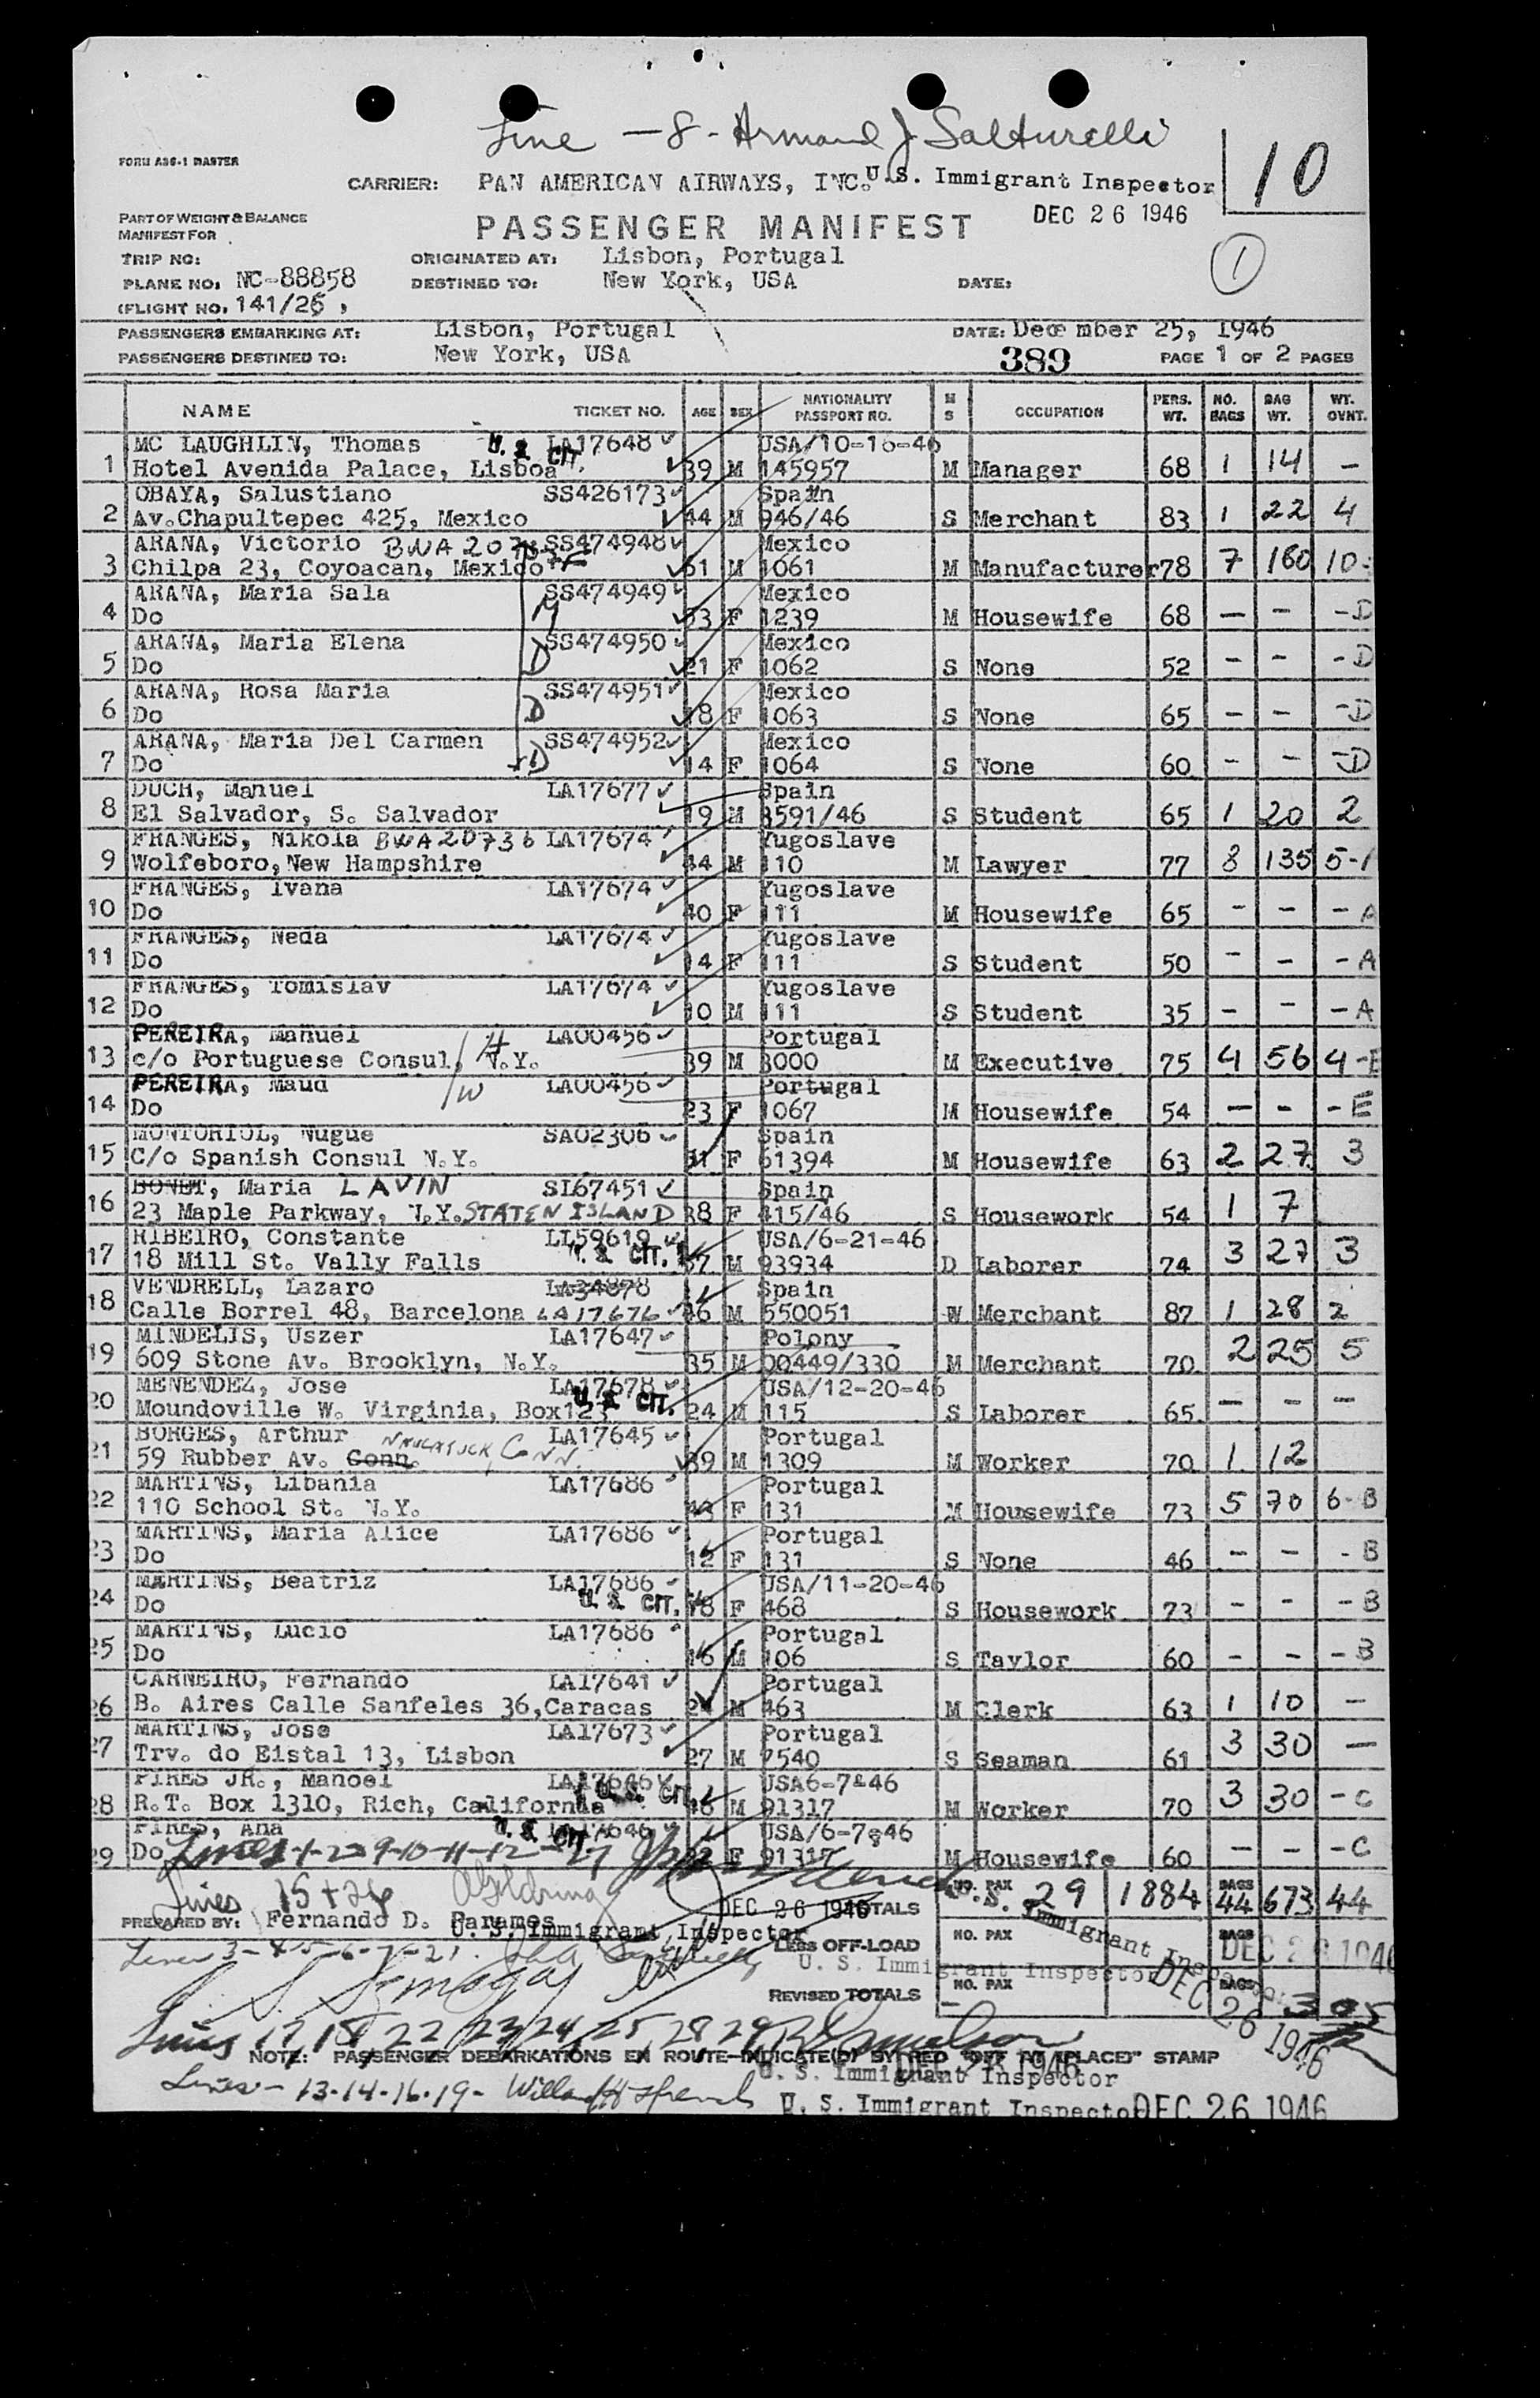 Line - 8 - Armand J Salturelli
FORM A86-1 MASTER
CARRIER: PAN AMERICAN AIRWAYS, INC. U.S. Immigrant Inspector
10
DEC 26 1946
PART OF WEIGHT & BALANCE
MANIFEST FOR
PASSENGER MANIFEST
1
TRIP NO: ORIGINATED AT: Lisbon, Portugal
PLANE NO: NC-88858 DESTINED TO: New York, USA DATE:
(FLIGHT NO. 141/25 )
PASSENGERS EMBARKING AT: Lisbon, Portugal DATE: December 25, 1946
PASSENGERS DESTINED TO: New York, USA 389 PAGE 1 OF 2 PAGES
NAME TICKET NO. AGE SEX NATIONALITY PASSPORT NO. M S OCCUPATION PERS. WT. NO. BAGS BAG WT. WT. OVNT.
MC LAUGHLIN, Thomas U.S. CIT. LA17648 USA/10-16-46
1 Hotel Avenida Palace, Lisboa 39 M 145957 M Manager 68 1 14 -
OBAYA, Salustiano SS426173 Spain
2 Av.Chapultepec 425, Mexico 44 M 946/46 S Merchant 83 1 22 4
ARANA, Victorio SS474948 Mexico
3 Chilpa 23, Coyoacan, Mexico F 51 M 1061 M Manufacturer 78 7 160 10
ARANA, Maria Sala SS474949 Mexico
4 Do M 53 F 1239 M Housewife 68 - - - D
ARANA, Maria Elena SS474950 Mexico
5 Do D 21 F 1062 S None 52 - - - D
ARANA, Rosa Maria SS474951 Mexico
6 Do D 18 F 1063 S None 65 - - - D
ARANA, Maria Del Carmen SS474952 Mexico
7 Do D 14 F 1064 S None 60 - - - D
DUCH, Manuel LA17677 Spain
8 El Salvador, S. Salvador 19 M 3591/46 S Student 65 1 20 2
FRANGES, Nikola BWA20736 LA17674 Yugoslave
9 Wolfeboro, New Hampshire 44 M 110 M Lawyer 77 8 135 5-A
FRANGES, Ivana LA17674 Yugoslave
10 Do 40 F 111 M Housewife 65 - - - A
FRANGES, Neda LA17674 Yugoslave
11 Do 14 F 111 S Student 50 - - - A
FRANGES, Tomislav LA17674 Yugoslave
12 Do 10 M 111 S Student 35 - - - A
PEREIRA, Manuel LA00456 Portugal
13 c/o Portuguese Consul, N.Y. H 39 M 3000 M Executive 75 4 56 4-E
PEREIRA, Maud W LA00456 Portugal
14 Do 23 F 1067 M Housewife 54 - - - E
MONTORIOL, Nugue SA02306 Spain
15 C/o Spanish Consul N.Y. 31 F 61394 M Housewife 63 2 27 3
BONET, Maria LAVIN SI67451 Spain
16 23 Maple Parkway, N.Y. STATEN ISLAND 38 F 415/46 S Housework 54 1 7
RIBEIRO, Constante LI59619 USA/6-21-46
17 18 Mill St. Vally Falls U.S. CIT. 37 M 93934 D Laborer 74 3 27 3
VENDRELL, Lazaro LA34878 Spain
18 Calle Borrel 48, Barcelona LA17676 46 M 550051 W Merchant 87 1 28 2
MINDELIS, Uszer LA17647 Polony
19 609 Stone Av. Brooklyn, N.Y. 35 M 00449/330 M Merchant 70 2 25 5
MENENDEZ, Jose LA17678 USA/12-20-46
20 Moundoville W. Virginia, Box123 U.S. CIT. 24 M 115 S Laborer 65 - - -
BORGES, Arthur LA17645 Portugal
21 59 Rubber Av. Conn. NAUGATUCK, CONN. 39 M 1309 M Worker 70 1 12
MARTINS, Libania LA17686 Portugal
22 110 School St. N.Y. 43 F 131 M Housewife 73 5 70 6-B
MARTINS, Maria Alice LA17686 Portugal
23 Do 12 F 131 S None 46 - - - B
MARTINS, Beatriz LA17686 USA/11-20-46
24 Do U.S. CIT. 18 F 468 S Housework 73 - - - B
MARTINS, Lucio LA17686 Portugal
25 Do 16 M 106 S Taylor 60 - - - B
CARNEIRO, Fernando LA17641 Portugal
26 B. Aires Calle Sanfeles 36, Caracas 24 M 463 M Clerk 63 1 10 -
MARTINS, Jose LA17673 Portugal
27 Trv. do Eistal 13, Lisbon 27 M 7540 S Seaman 61 3 30 -
PIRES JR., Manoel LA17646 USA6-7-46
28 R.T. Box 1310, Rich, California U.S. CIT. 46 M 91317 M Worker 70 3 30 - C
PIRES, Ana U.S. CIT. LA17646 USA/6-7-46
29 Do F 91317 M Housewife 60 - - - C
Lines 1-2-9-10-11-12-27
Lines 15 + 26
DEC 26 1946 TOTALS NO. PAX 29 1884 BAGS 44 673 44
PREPARED BY: Fernando D. Parames
U.S. Immigrant Inspector
U.S. Immigrant Inspector
Lines 3-4-5-6-7-21
LESS OFF-LOAD NO. PAX BAGS DEC 26 1946
U. S. Immigrant Inspector
REVISED TOTALS NO. PAX BAGS
DEC 26 1946
Lines 17, 18, 22, 23, 24, 25, 28 29
NOTE: PASSENGER DEBARKATIONS EN ROUTE-INDICATE(D) BY RED "OFF AT (PLACE)" STAMP
U. S. Immigrant Inspector
Lines - 13-14-16-19-
U. S. Immigrant Inspector DEC 26 1946